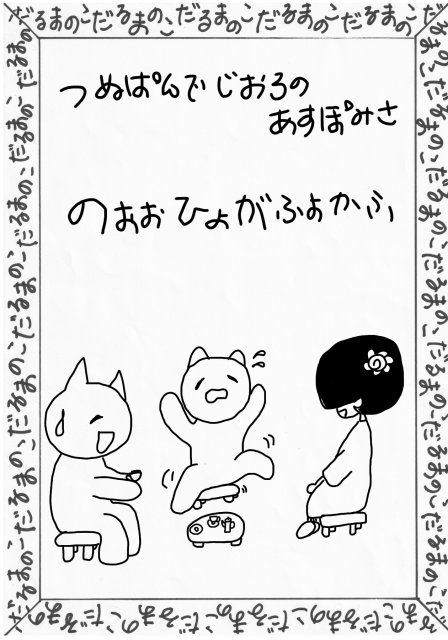 だるまのこだるまのこだるまのこだるまのこだるまのこ
つぬぱんでじおろの
あすぽみさ
のぉぉひょがふぉかふ